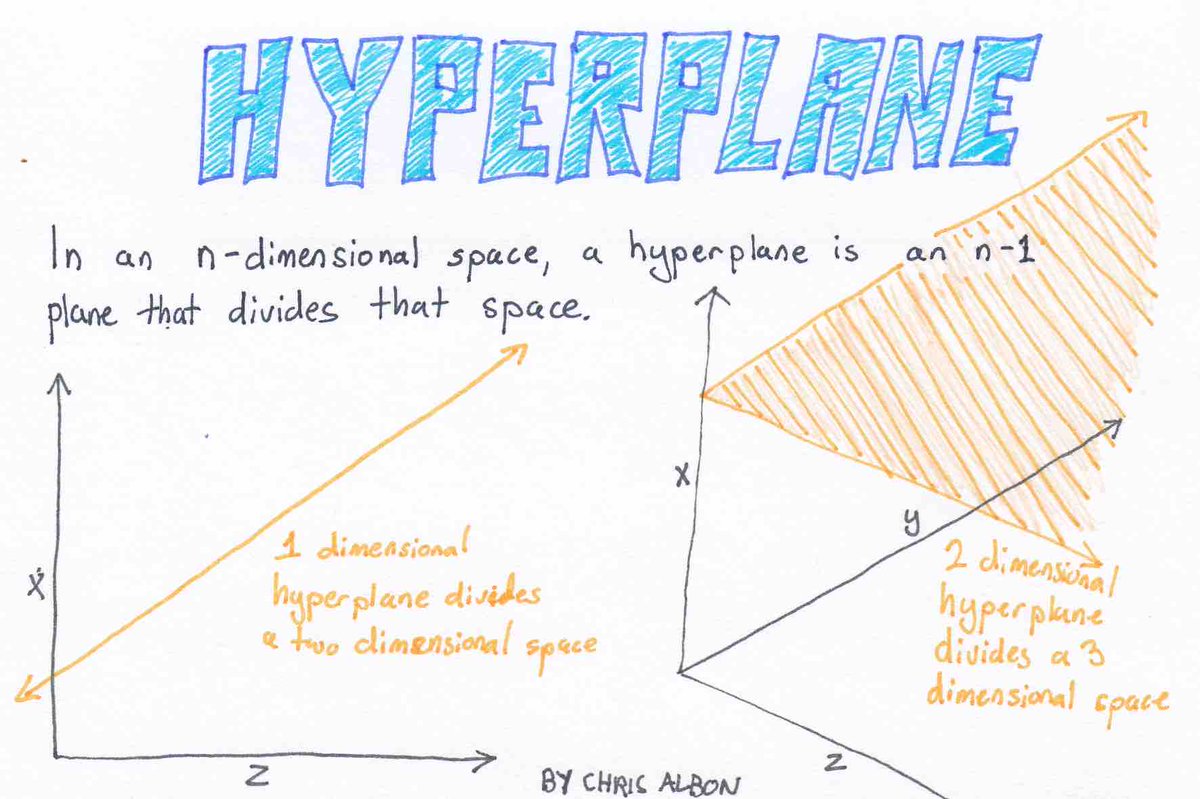 HYPERPLANE
In an n-dimensional space, a hyperplane is an n-1
plane that divides that space.
X
Z
1 dimensional
hyperplane divides
a two dimensional space
X
y
Z
2 dimensional
hyperplane
divides a 3
dimensional space
BY CHRIS ALBON